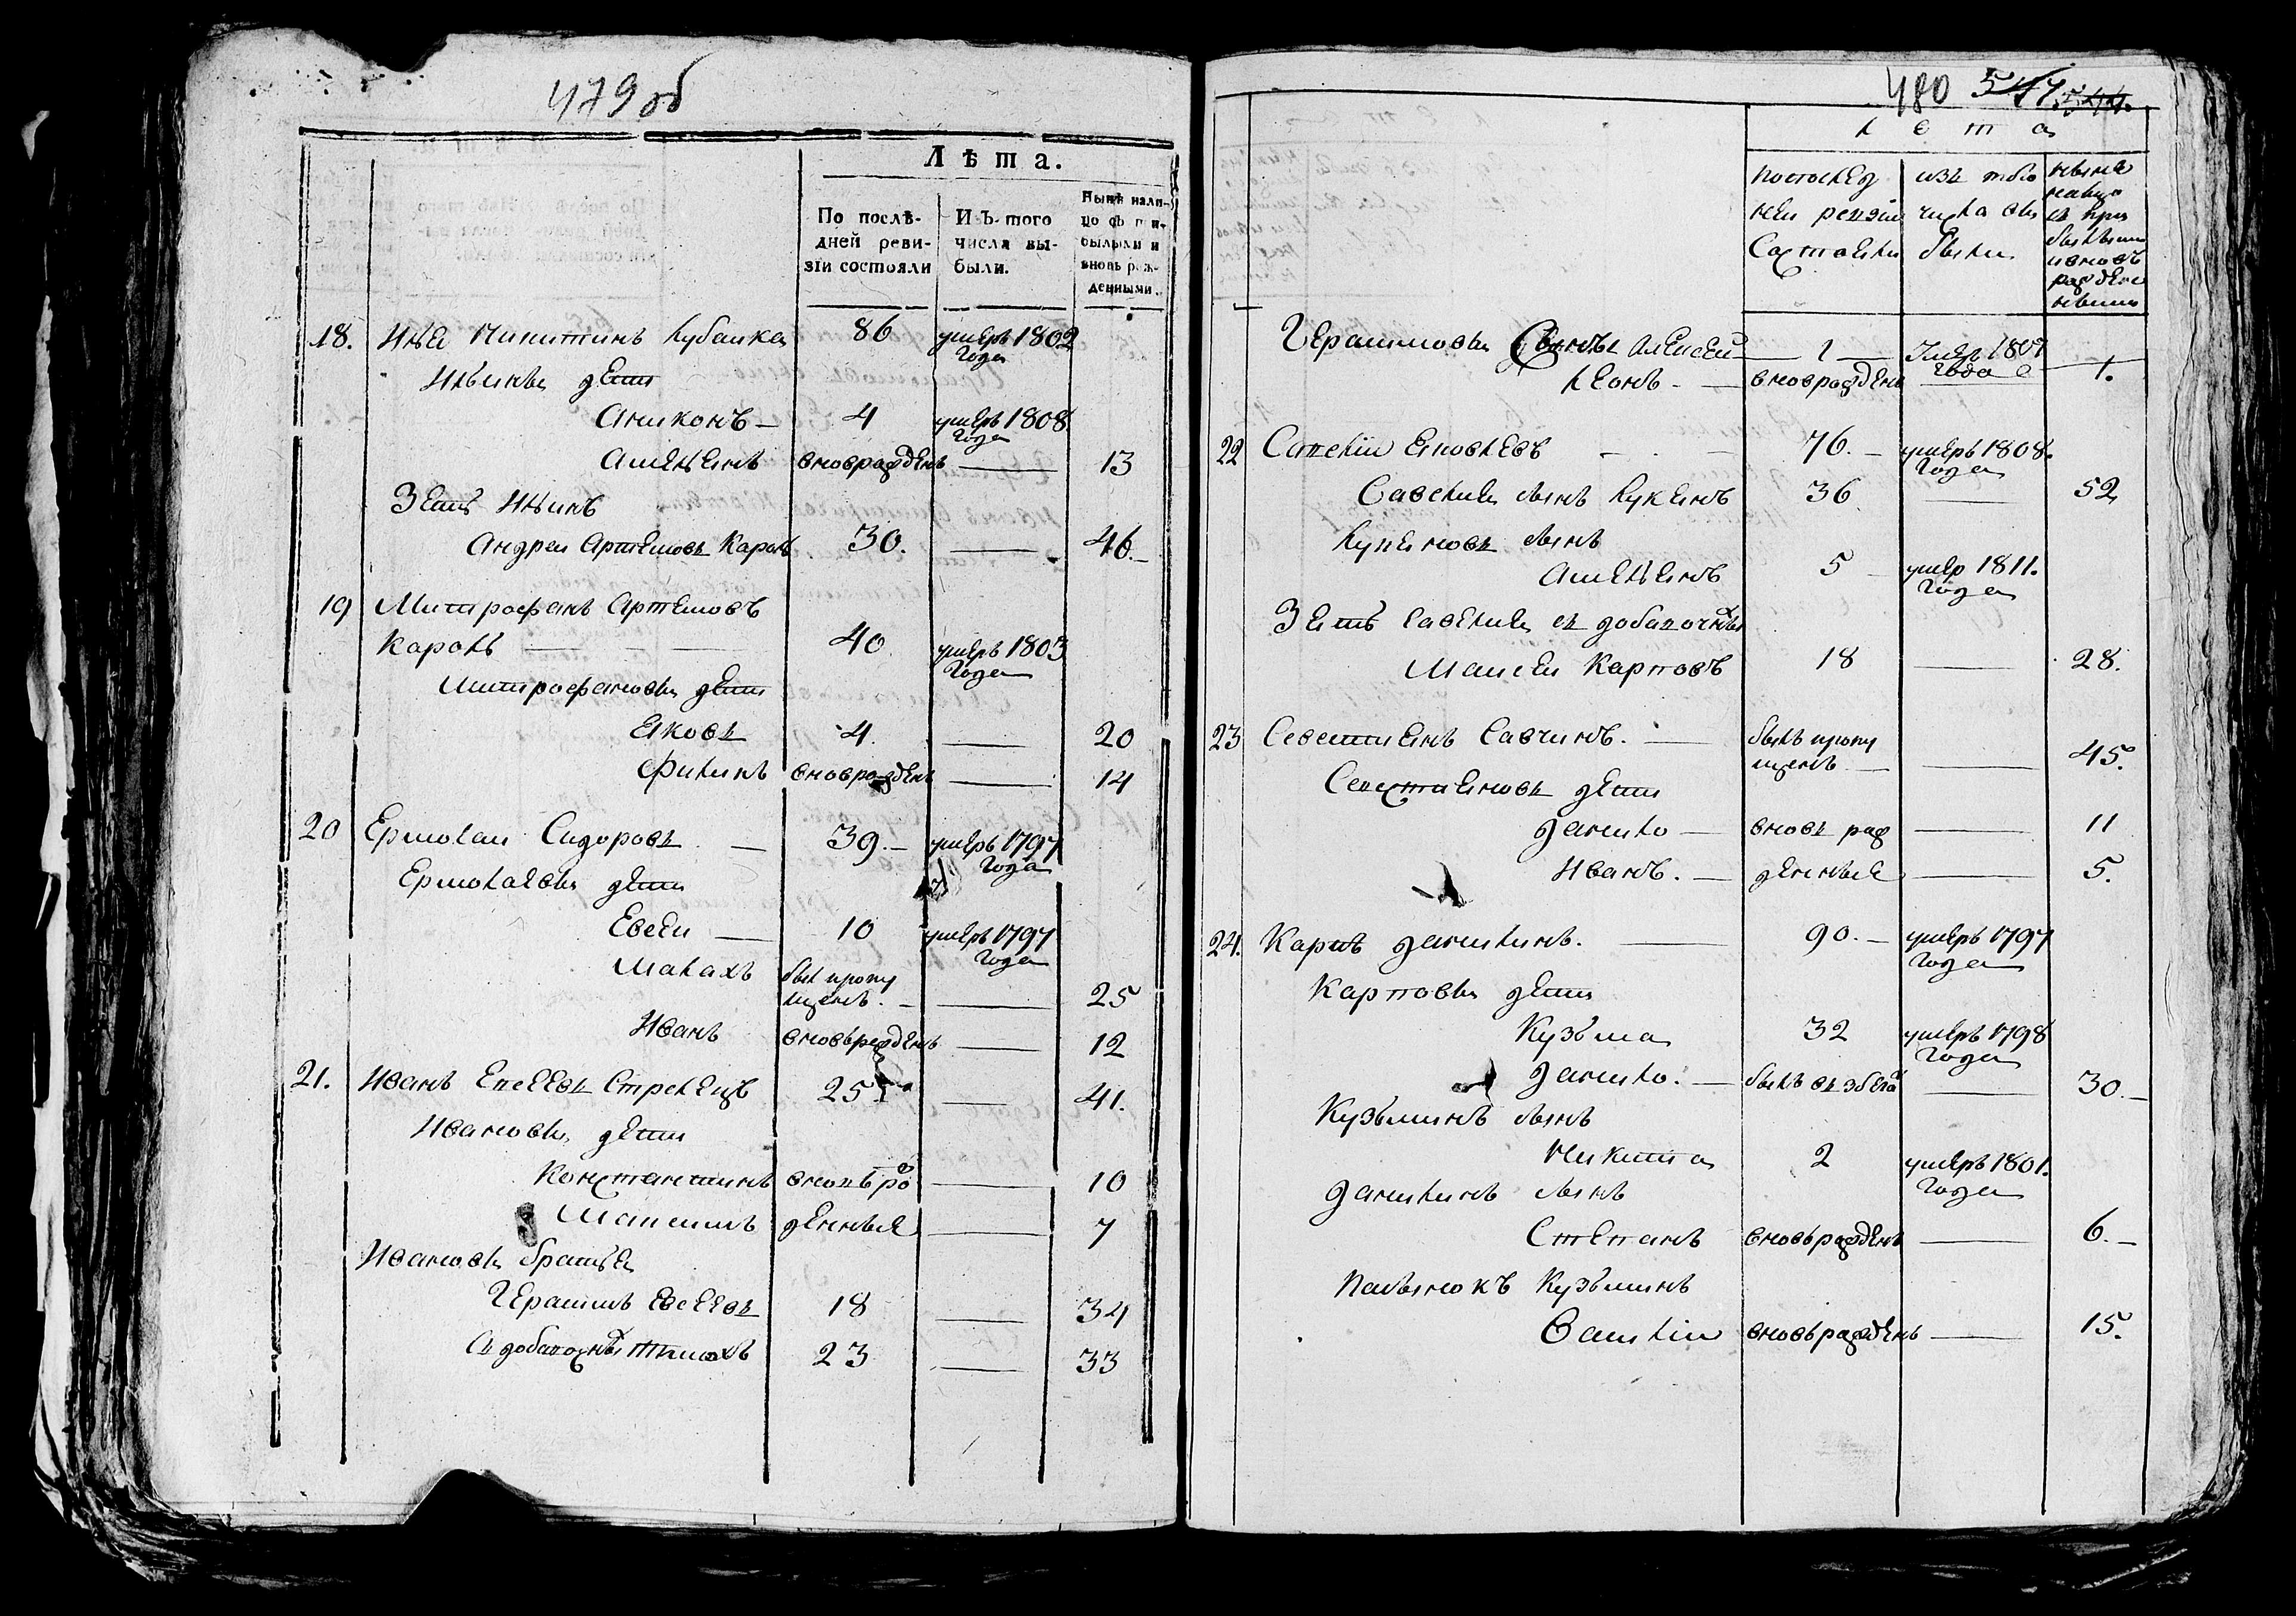 479 об
Лѣта.
По послѣ-
дней реви-
зіи состояли
Изъ того
числа вы-
были.
Нынѣ нали-
цо съ при-
былыми и
вновь рож-
денными.
18. Илья Никитинъ Кубанка 86 умеръ 1802 года
Ильины дети
Ониконъ — 4 умеръ 1808 года
Амельянъ вновьражденъ — 13
Зять Ильинъ
Андреи Артемовъ Кароль 30. — 46.
19 Митрофанъ Артемовъ
Кароль — 40 умеръ 1803 года
Митрофановы дети
Яковъ 4. — 20
Филипъ вновражденъ — 14
20 Ермолаи Сидоровъ — 39. — умеръ 1797 года
Ермолаевы дети
Евсеи — 10 умеръ 1797 года
Малахъ был пропу
щенъ. — 25
Иванъ вновьражденъ — 12
21. Иванъ Евсеевъ Стрелецъ 25 — 41.
Ивановы дети
Константинъ вновь ро — 10
Максимъ денные — 7
Ивановы братья
Герасимъ Евсеевъ 18 — 34
Съ добавочных Тимохъ 23 — 33
480 547 544
Лета
По послед
неи ревизии
Состояли
изъ того
числа вы
были
ныне
налицо
съ при
былыми
и вновь
ражден
ными
Герасимовы Сыны Алексеи — 1 — Умеръ 1807 года
Леонъ — вновражденъ — 1.
22 Савелии Яковлевъ — 76. — умеръ 1808. года
Савелия сынъ Лукянъ 36 — 52
Лукяновъ сынъ
Амельянъ 5 — умер 1811. года
Зять Савелия съ добавочных
Маисеи Карповъ 18 — 28.
23 Севастиянъ Савчинъ. — былъ пропу
щенъ — — 45.
Севастияновъ дети
Данило — вновь раж — 11
Иванъ. — денные — 5.
24. Карпъ Данилинъ. — 90. — умеръ 1797 года
Карповы дети
Кузьма 32 умеръ 1798 года
Данило. — былъ въ збегах — 30. —
Кузьминъ сынъ
Никита 2 умеръ 1801. года
Данилинъ сынъ
Степанъ вновьражденъ — 6. —
Пасынокъ Кузьминъ
Василии вновьражденъ — 15.